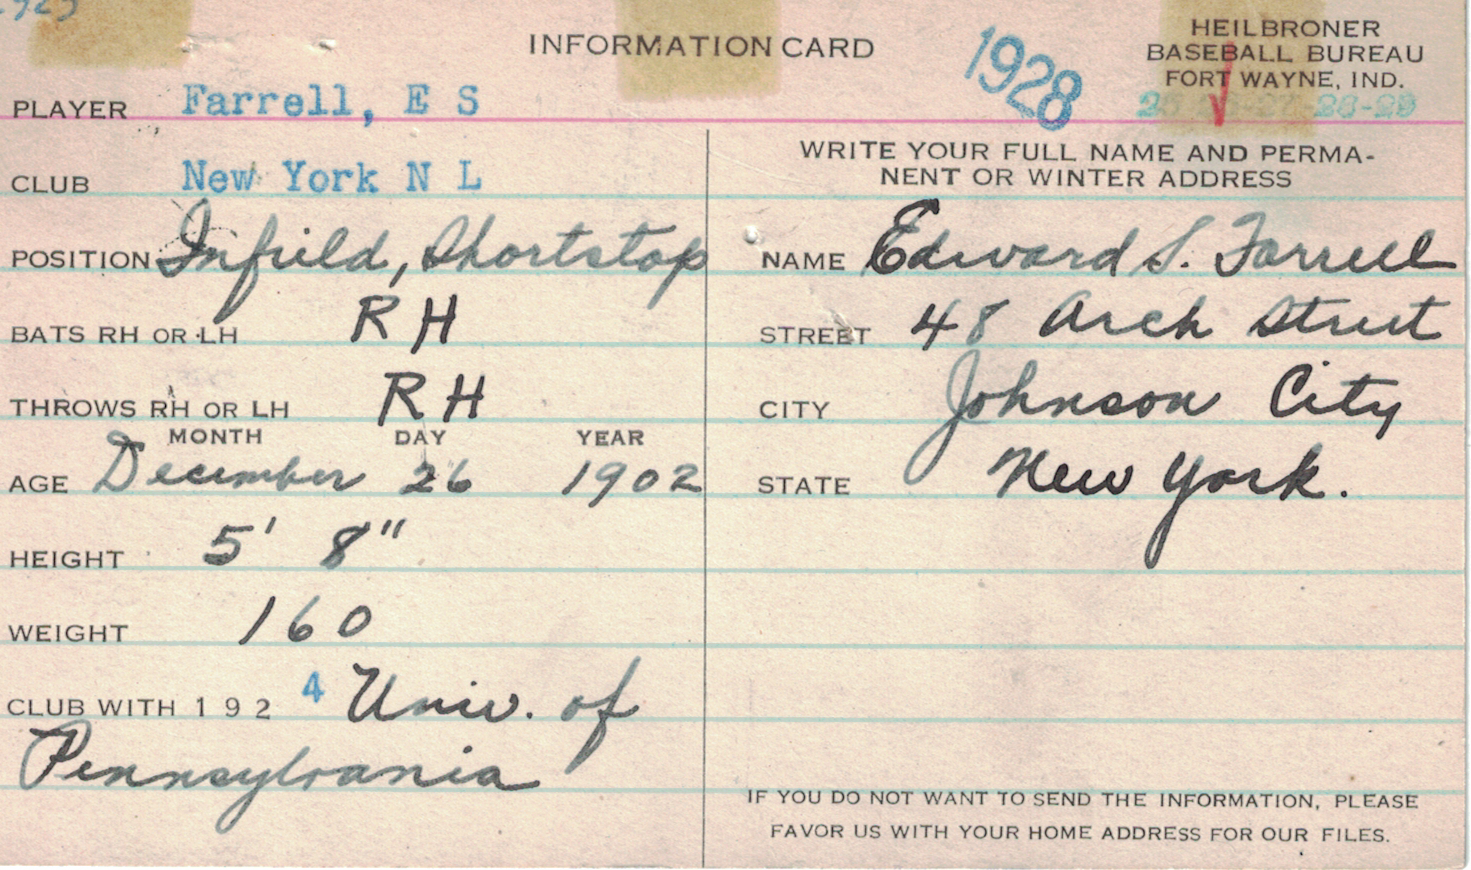 INFORMATION CARD
1928
HEILBRONER
BASEBALL BUREAU
FORT WAYNE, IND.
28-29
PLAYER Farrell, E S
CLUB New York N L
POSITION Infield, Shortstop
BATS RH OR LH R H
THROWS RH OR LH R H
MONTH DAY YEAR
AGE December 26 1902
HEIGHT 5' 8"
WEIGHT 160
CLUB WITH 192 4 Univ. of
Pennsylvania
WRITE YOUR FULL NAME AND PERMA-
NENT OR WINTER ADDRESS
NAME Edward S. Farrell
STREET 48 Arch Street
CITY Johnson City
STATE New York.
IF YOU DO NOT WANT TO SEND THE INFORMATION, PLEASE
FAVOR US WITH YOUR HOME ADDRESS FOR OUR FILES.